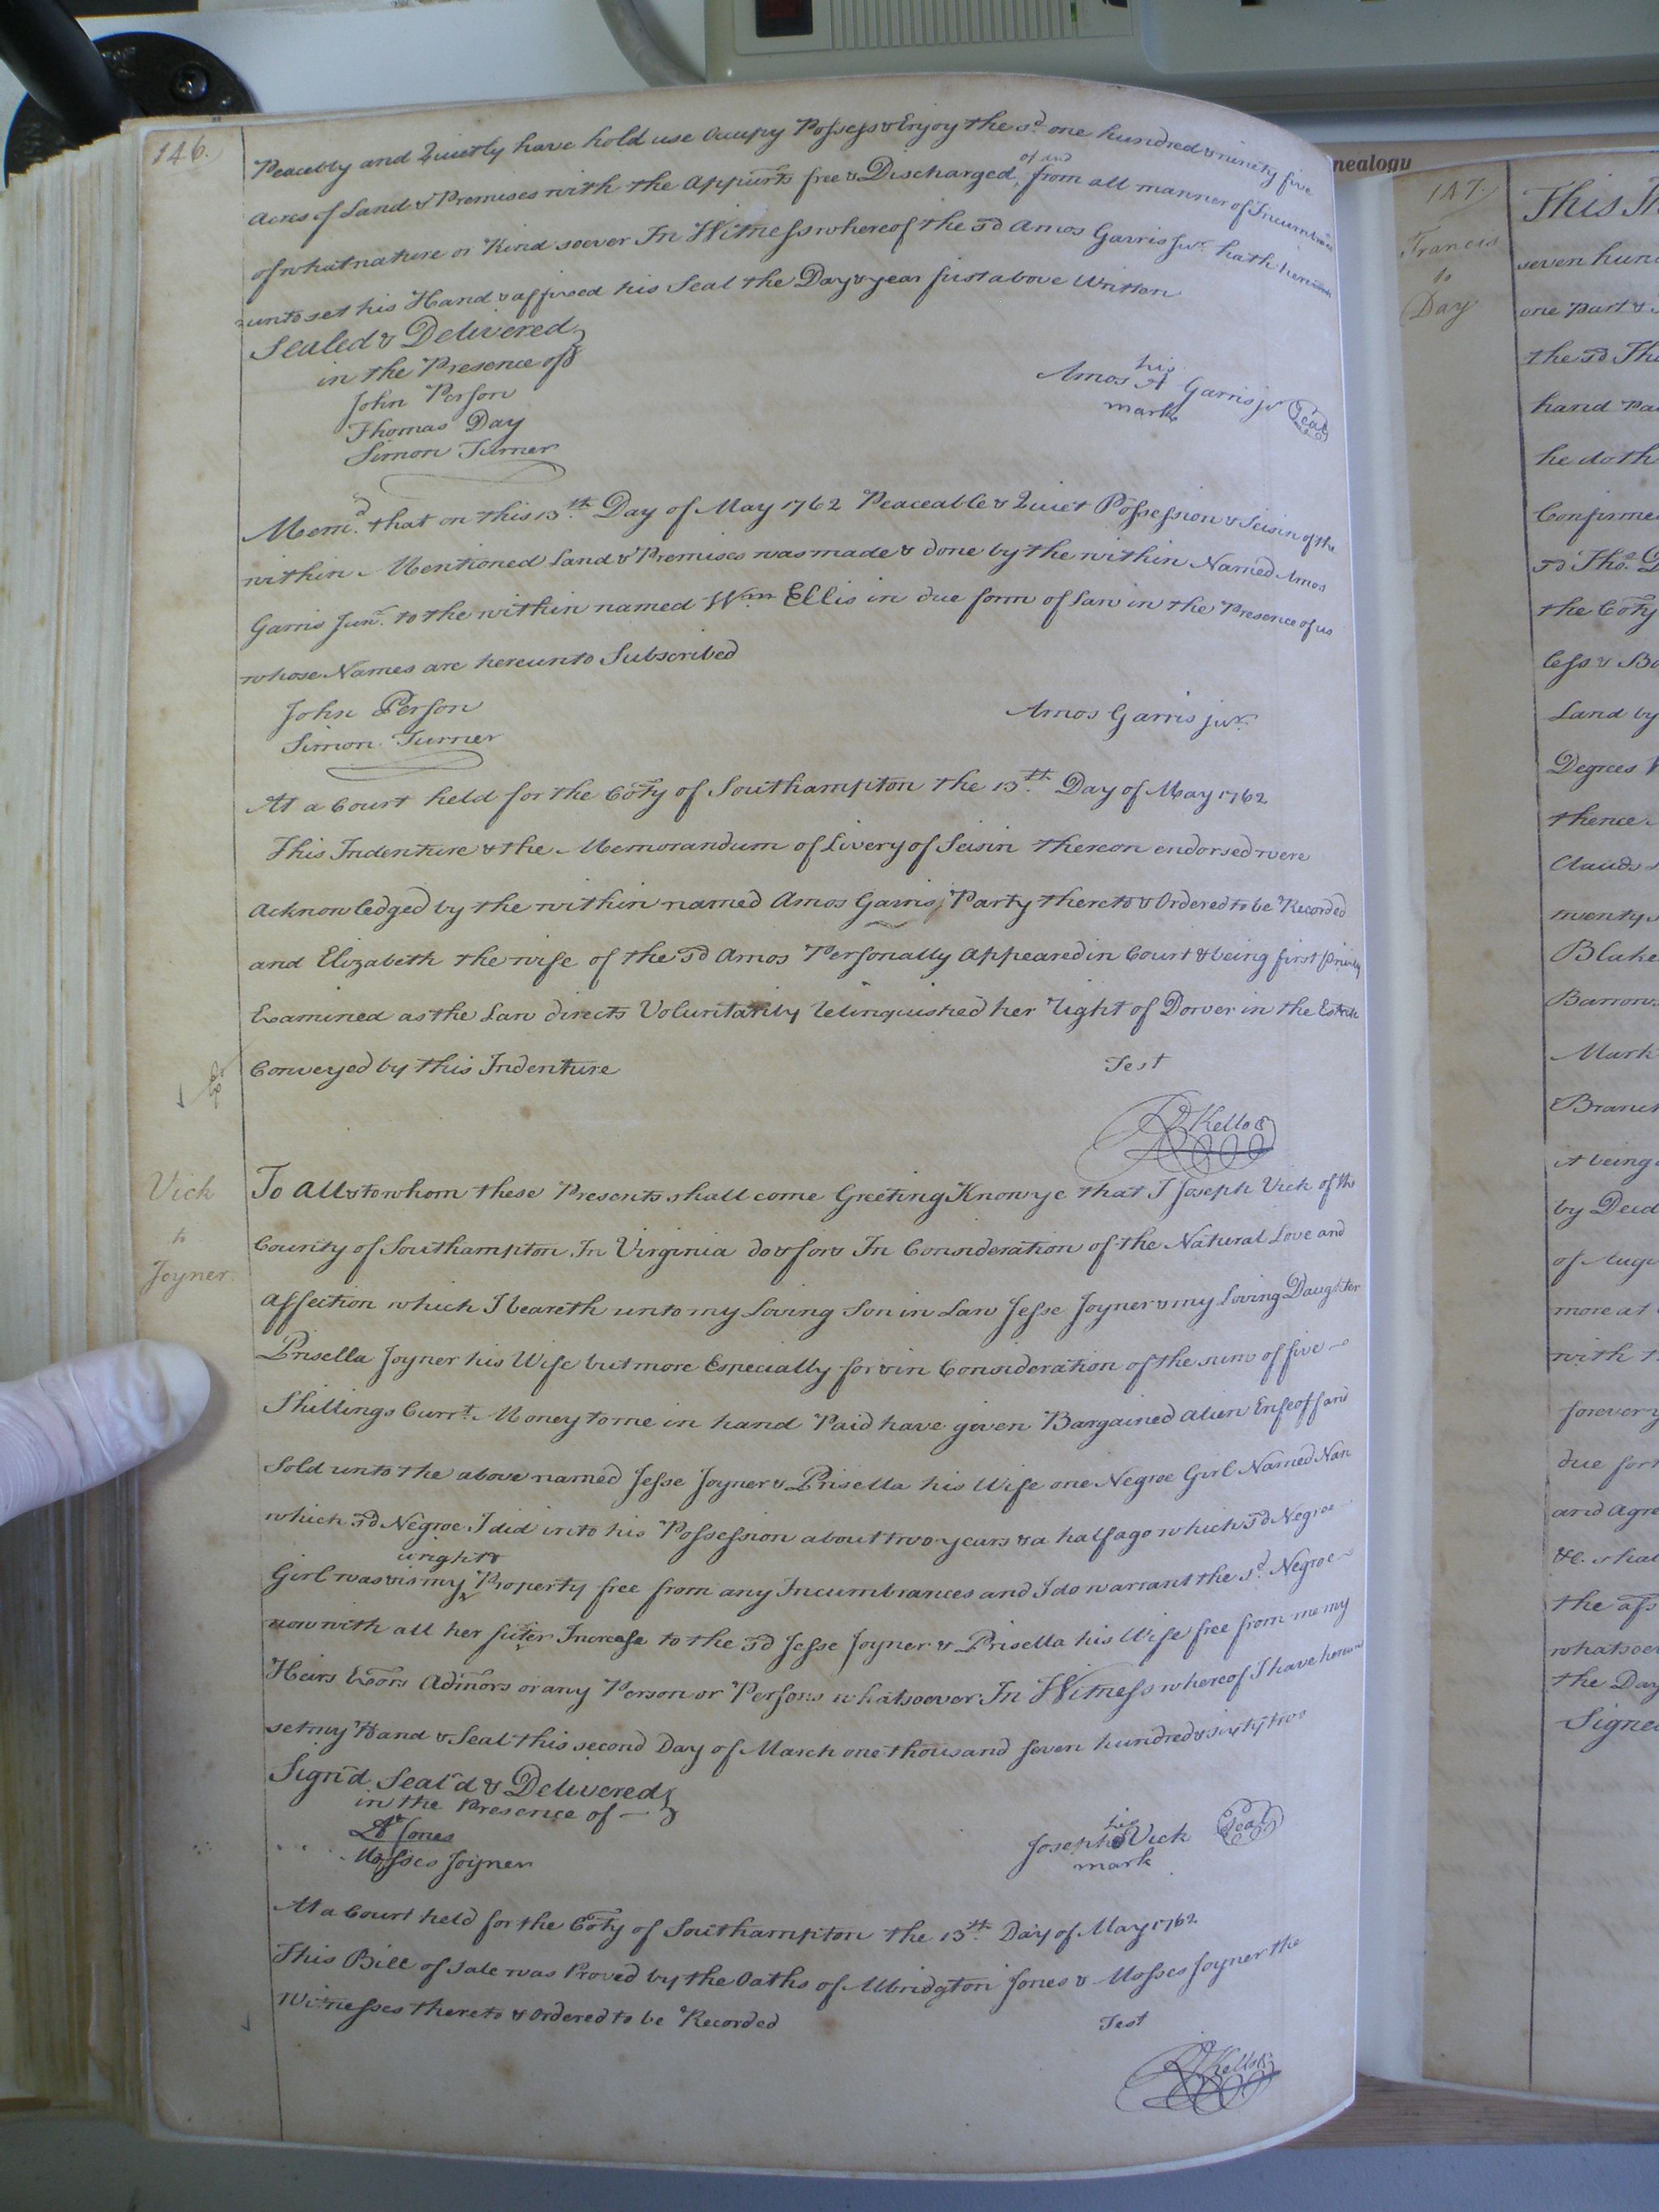 146.
Peaceably and Quietly have hold use Occupy Possess & Enjoy the sd. one hundred & ninety five
Acres of Land & Premises with the Appurts free & Discharged of and from all manner of Incumbrance
of what nature or Kind soever In Witness whereof the sd Amos Garris Junr. hath hereunto
unto set his Hand & affixed his Seal the Day & year first above Written
Sealed & Delivered
in the Presence of
John Person
Thomas Day
Simon Turner
his
Amos A Garris jr Seal
mark
Memd. that on this 13th. Day of May 1762 Peaceable & Quiet Possession & Seisin of the
within Mentioned Land & Premises was made & done by the within Named Amos
Garris Junr. to the within named Wm Ellis in due form of Law in the Presence of us
whose Names are hereunto Subscribed
John Person
Simon Turner
Amos Garris junr.
At a Court held for the Coty of Southampton the 13th. Day of May 1762
This Indenture & the Memorandum of Livery of Seisin thereon endorsed were
Acknowledged by the within named Amos Garris, Party thereto & Ordered to be Recorded
and Elizabeth the wife of the sd Amos Personally Appeared in Court & being first Privily
Examined as the Law directs Voluntarily relinquished her right of Dower in the Estate
Conveyed by this Indenture
Test
R Kello
Vick
to
Joyner
To All to whom these Presents shall come Greeting Know ye that I Joseph Vick of the
County of Southampton In Virginia do & for & In Consideration of the Natural Love and
Affection which I beareth unto my Loving Son in Law Jesse Joyner & my Loving Daughter
Prisella Joyner his Wife but more Especially for & in Consideration of the sum of five
Shillings Currt. Money to me in hand Paid have given Bargained alien Enfeoff and
Sold unto the above named Jesse Joyner & Prisella his Wife one Negroe Girl Named Nan
which sd Negroe I did into his Possession about two years & a half ago which sd Negroe
wright
Girl was & is my Property free from any Incumbrances and I do warrant the sd. Negroe
now with all her futer Increase to the sd Jesse Joyner & Prisella his Wife free from me my
Heirs Exors Admors or any Person or Persons whatsoever In Witness whereof I have hereunto
set my Hand & Seal this second Day of March one thousand seven hundred & sixty two
Sign'd Seal'd & Delivered
in the Presence of
Ab Jones
Mosses Joyner
his
Joseph Vick Seal
mark
At a Court held for the Coty of Southampton the 13th. Day of May 1762
This Bill of Sale was Proved by the Oaths of Albridgton Jones & Mosses Joyner the
Witnesses thereto & Ordered to be Recorded
Test
R Kello
nealogy
147.
Francis
to
Day
This
seven hun
one Part &
the sd Tho
hand Pa
he doth
Confirme
sd Tho. D
the Coty
Less & Bo
Land by
Degrees
thence
Clauds
twenty
Blake
Barrow
Mark
Branch
it being
by Deed
of Augu
more at
with t
forever
due for
and Agre
&c. shal
the afs
whatsoev
the Day
Signe